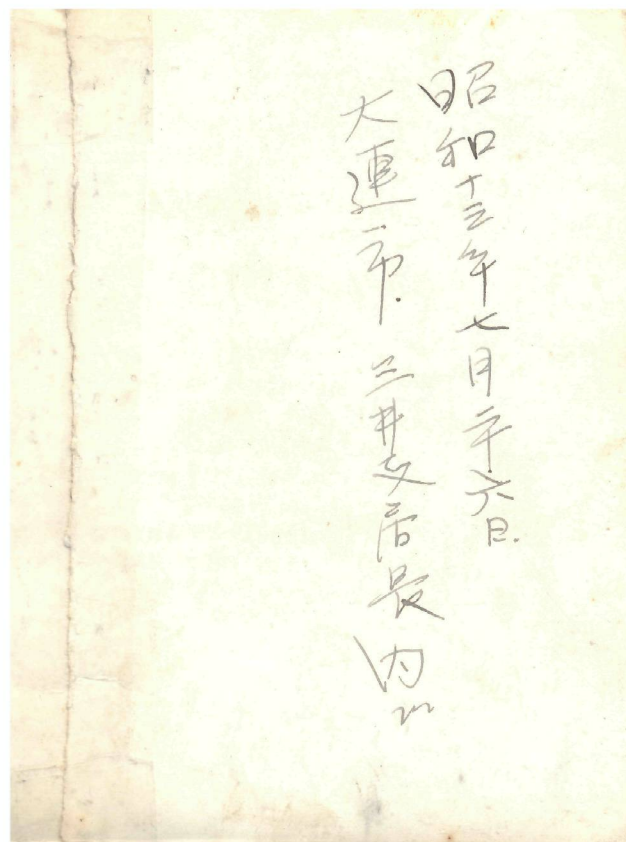 昭和十三年七月二十六日.
大連市. 三井支店長内